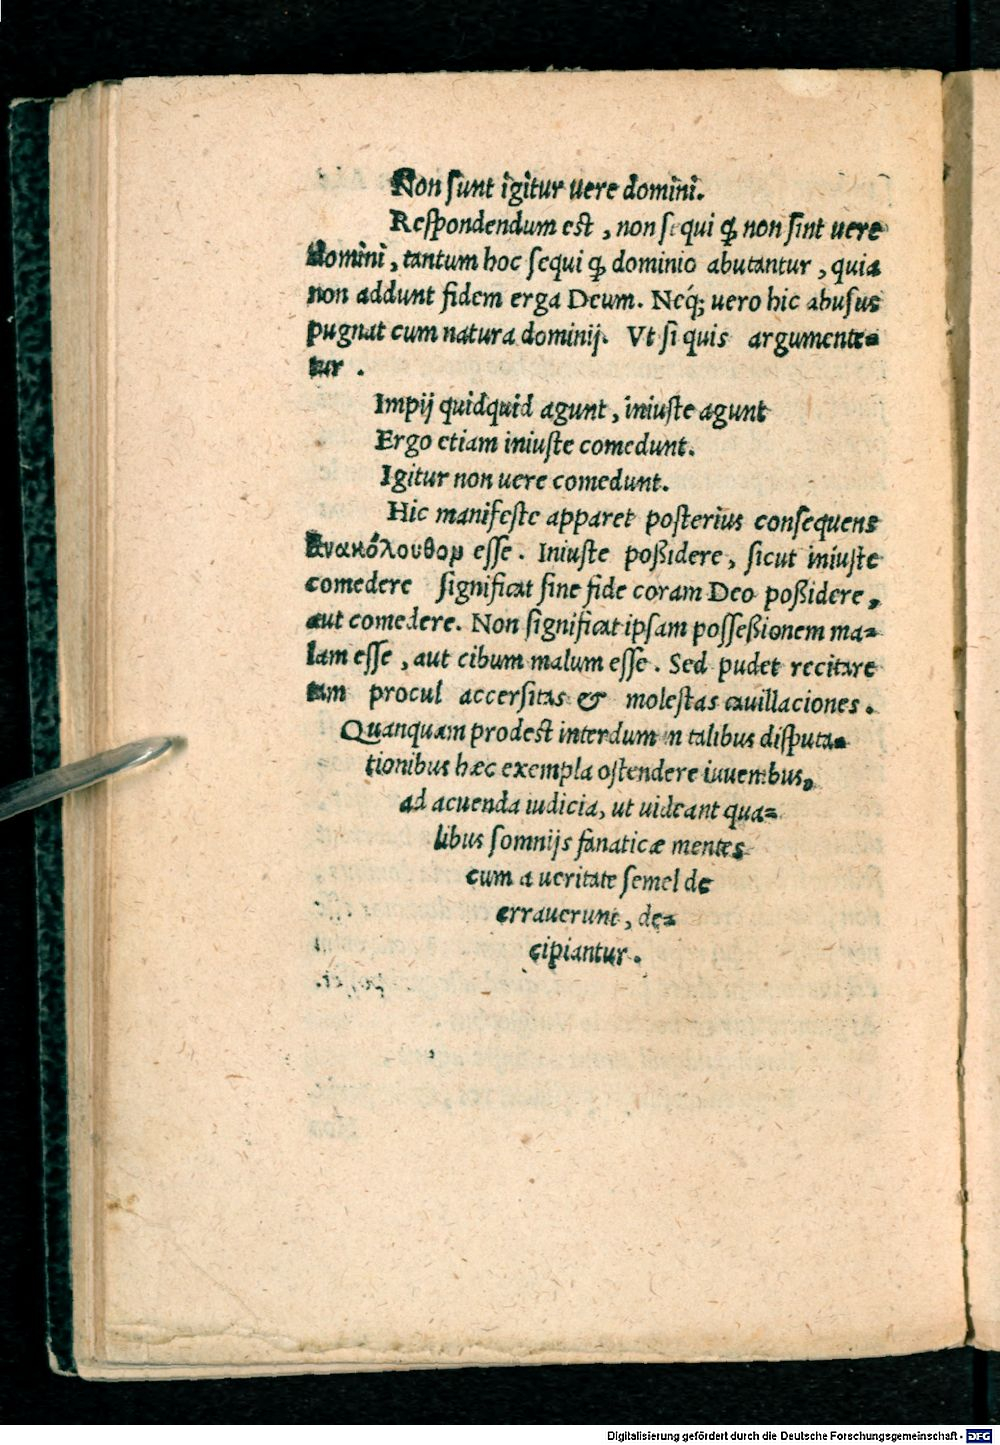 Non ſunt igitur uere domini.
Reſpondendum eſt, non ſequi ꝙ non ſint uere
domini, tantum hoc ſequi ꝙ dominio abutantur, quia
non addunt fidem erga Deum. Neqꝫ uero hic abuſus
pugnat cum natura dominij. Vt ſi quis argumente⸗
tur.
Impij quidquid agunt, iniuſte agunt
Ergo etiam iniuſte comedunt.
Igitur non uere comedunt.
Hic manifeſte apparet poſterius conſequens
ἀνακόλουθον eſſe. Iniuſte poßidere, ſicut iniuſte
comedere ſignificat ſine fide coram Deo poßidere,
aut comedere. Non ſignificat ipſam poſſeßionem ma⸗
lam eſſe, aut cibum malum eſſe. Sed pudet recitare
tam procul accerſitas & moleſtas cauillaciones.
Quanquam prodeſt interdum in talibus diſputa⸗
tionibus hæc exempla oſtendere iuuenibus,
ad acuenda iudicia, ut uideant qua⸗
libus ſomnijs fanaticæ mentes
cum a ueritate ſemel de
errauerunt, de⸗
cipiantur.
Digitalisierung gefördert durch die Deutsche Forschungsgemeinschaft - DFG